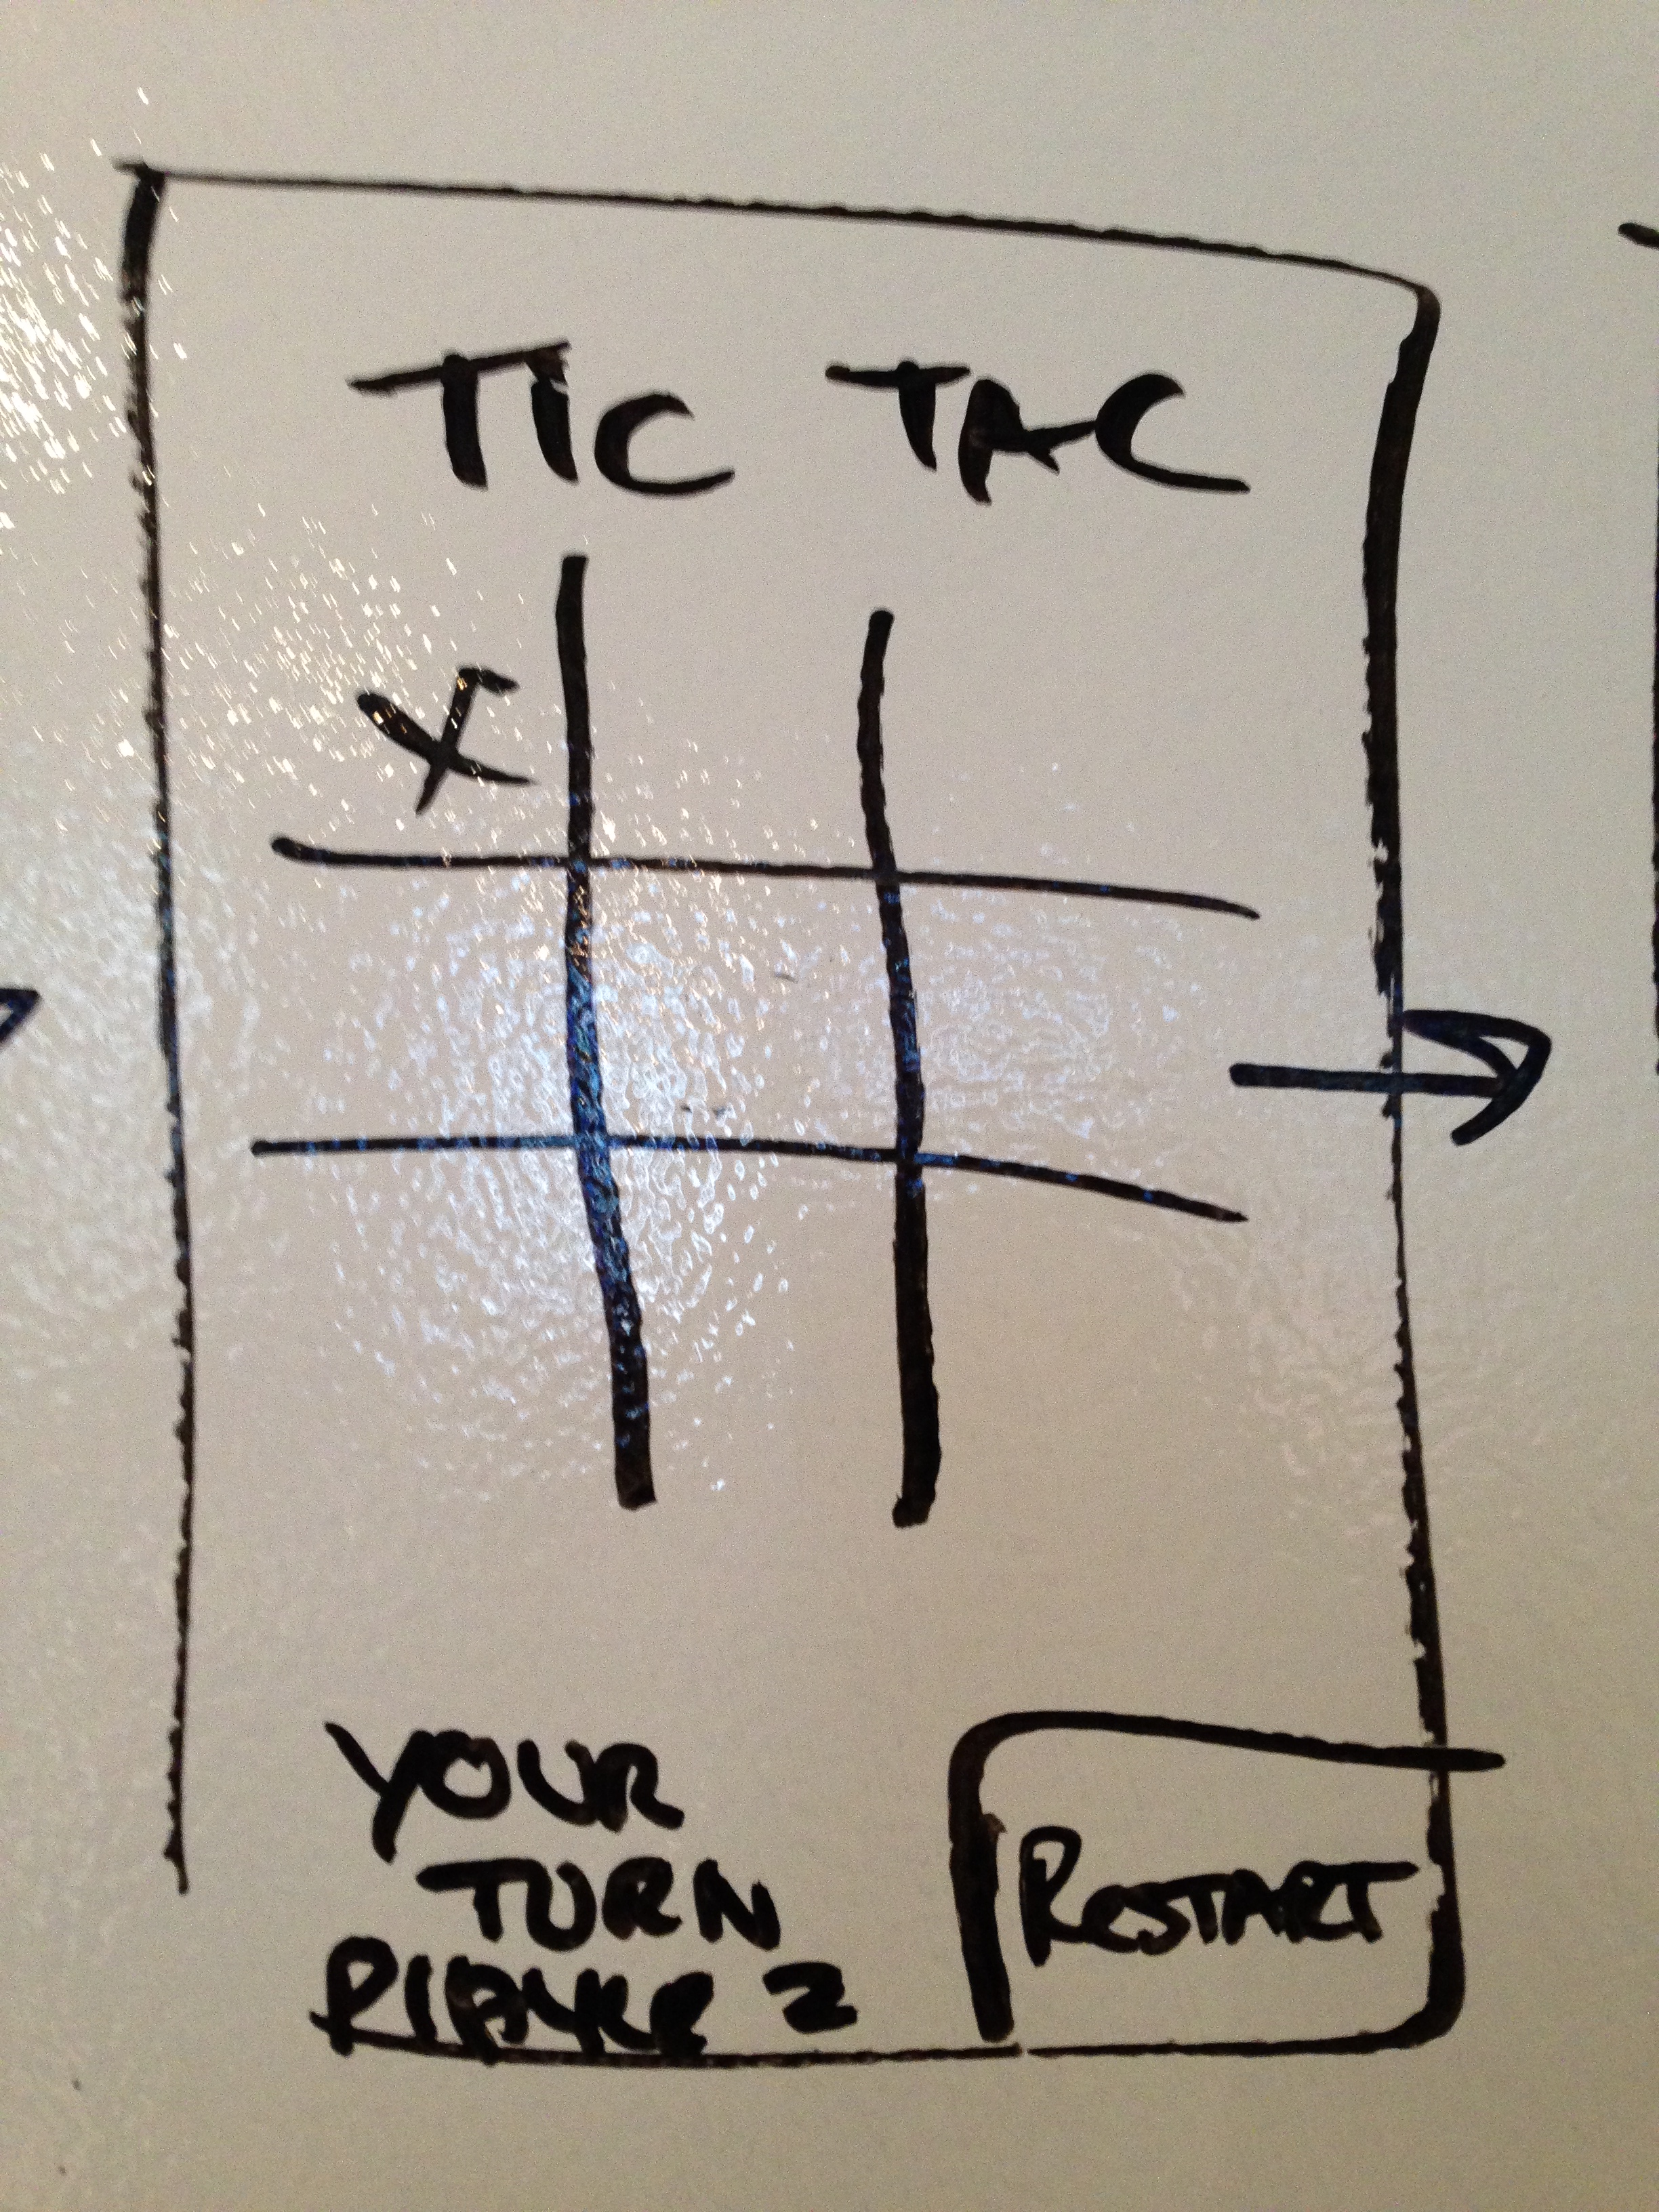 TIC TAC
X
YOUR
TURN
PlAYER 2
RESTART